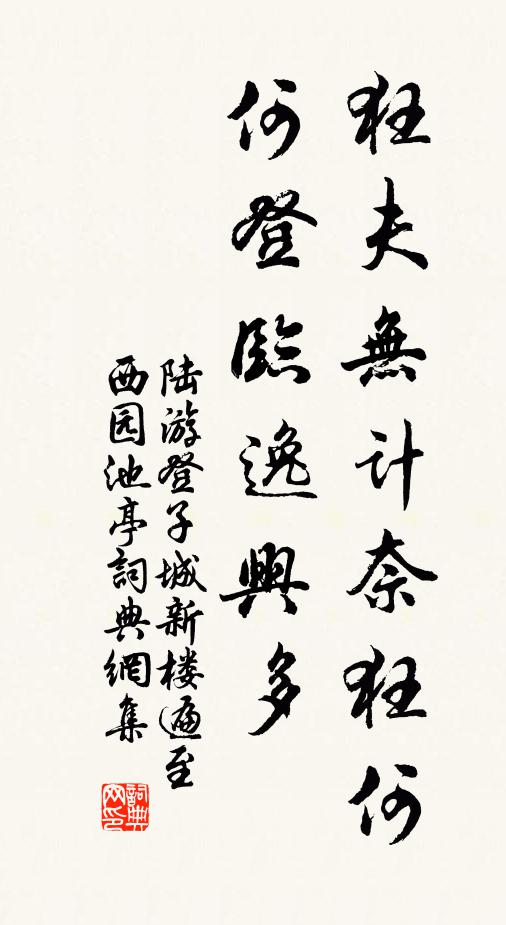 狂夫無計奈狂何
何登臨逸興多
陆游登子城新楼遍至
西园池亭詞典網集
詞典网印